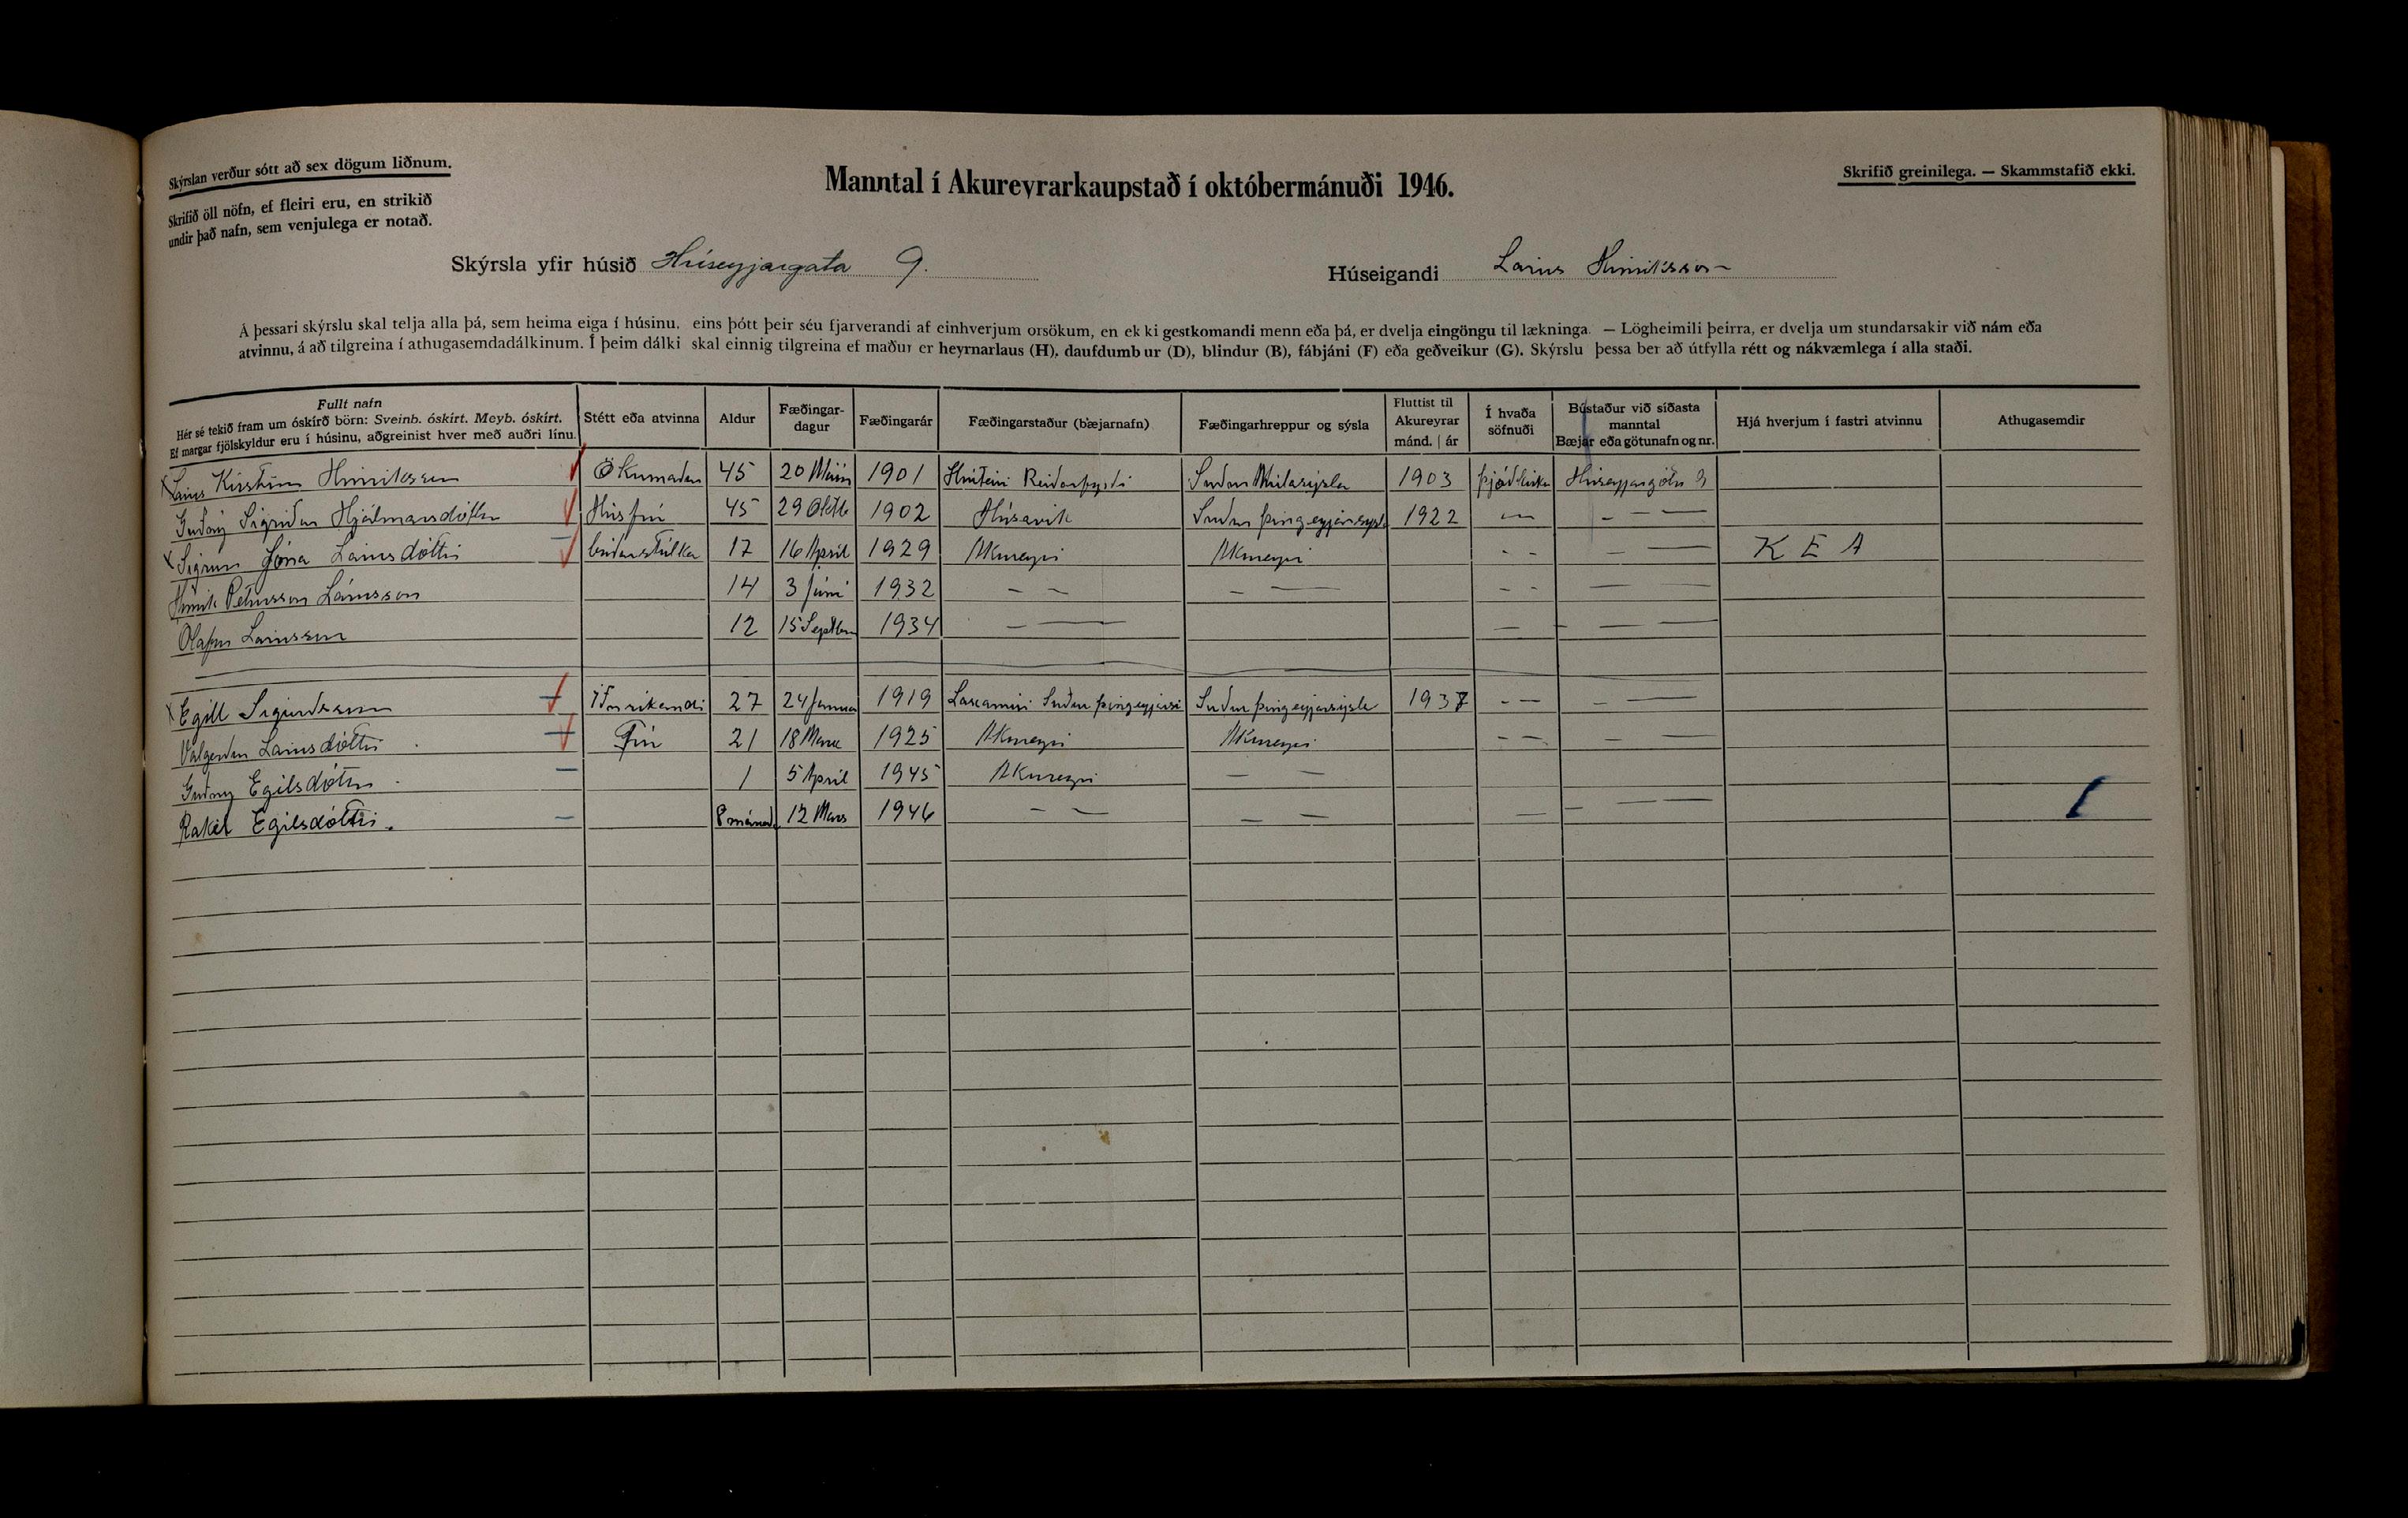 Skýrslan verður sótt að sex dögum liðnum.
Skrifið öll nöfn, ef fleiri eru, en strikið
undir það nafn, sem venjulega er notað.
Manntal í Akureyrarkaupstað í októbermánuði 1946.
Skrifið greinilega. — Skammstafið ekki.
Skýrsla yfir húsið Hríseyjargata 9.
Húseigandi Lárus Hinriksson
Á þessari skýrslu skal telja alla þá, sem heima eiga í húsinu, eins þótt þeir séu fjarverandi af einhverjum orsökum, en ekki gestkomandi menn eða þá, er dvelja eingöngu til lækninga. — Lögheimili þeirra, er dvelja um stundarsakir við nám eða
atvinnu, á að tilgreina í athugasemdadálkinum. Í þeim dálki skal einnig tilgreina ef maður er heyrnarlaus (H), daufdumbur (D), blindur (B), fábjáni (F) eða geðveikur (G). Skýrslu þessa ber að útfylla rétt og nákvæmlega í alla staði.
Fullt nafn
Hér sé tekið fram um óskírð börn: Sveinb. óskírt. Meyb. óskírt.
Ef margar fjölskyldur eru í húsinu, aðgreinist hver með auðri línu.
Stétt eða atvinna
Aldur
Fæðingar-
dagur
Fæðingarár
Fæðingarstaður (bæjarnafn)
Fæðingarhreppur og sýsla
Fluttist til
Akureyrar
mánd. | ár
Í hvaða
söfnuði
Bústaður við síðasta
manntal
Bæjar eða götunafn og nr.
Hjá hverjum í fastri atvinnu
Athugasemdir
Lárus Hinriksson Ökumaður 45 20 1901 Suður Múlasýsla 1903 þjóðkirkju Hríseyjargötu 9
Guðný Sigríður Hjálmarsdóttir Húsfrú 45 29 Októb 1902 Húsavík Suður þingeyjarsýsl 1922 — — — —
Sigrún Jóna Lárusdóttir búðarstúlka 17 16 Apríl 1929 Akureyri Akureyri - - — — K E A
Hinrik Pétursson Lárusson 14 3 Júní 1932 — — — — - - — —
Ólafur Lárusson 12 15 Septem 1934 — — — — — —
Egill Sigurðsson 27 24 Janua 1919 Suður þingeyjarsý Suður þingeyjarsýsla 1937 - — — —
Valgerður Lárusdóttir Frú 21 18 Mars 1925 Akureyri Akureyri - — — —
Guðný Egilsdóttir 1 5 Apríl 1945 Akureyri — —
Rakel Egilsdóttir. 8 mánað 12 Mars 1946 — — — — — — — —